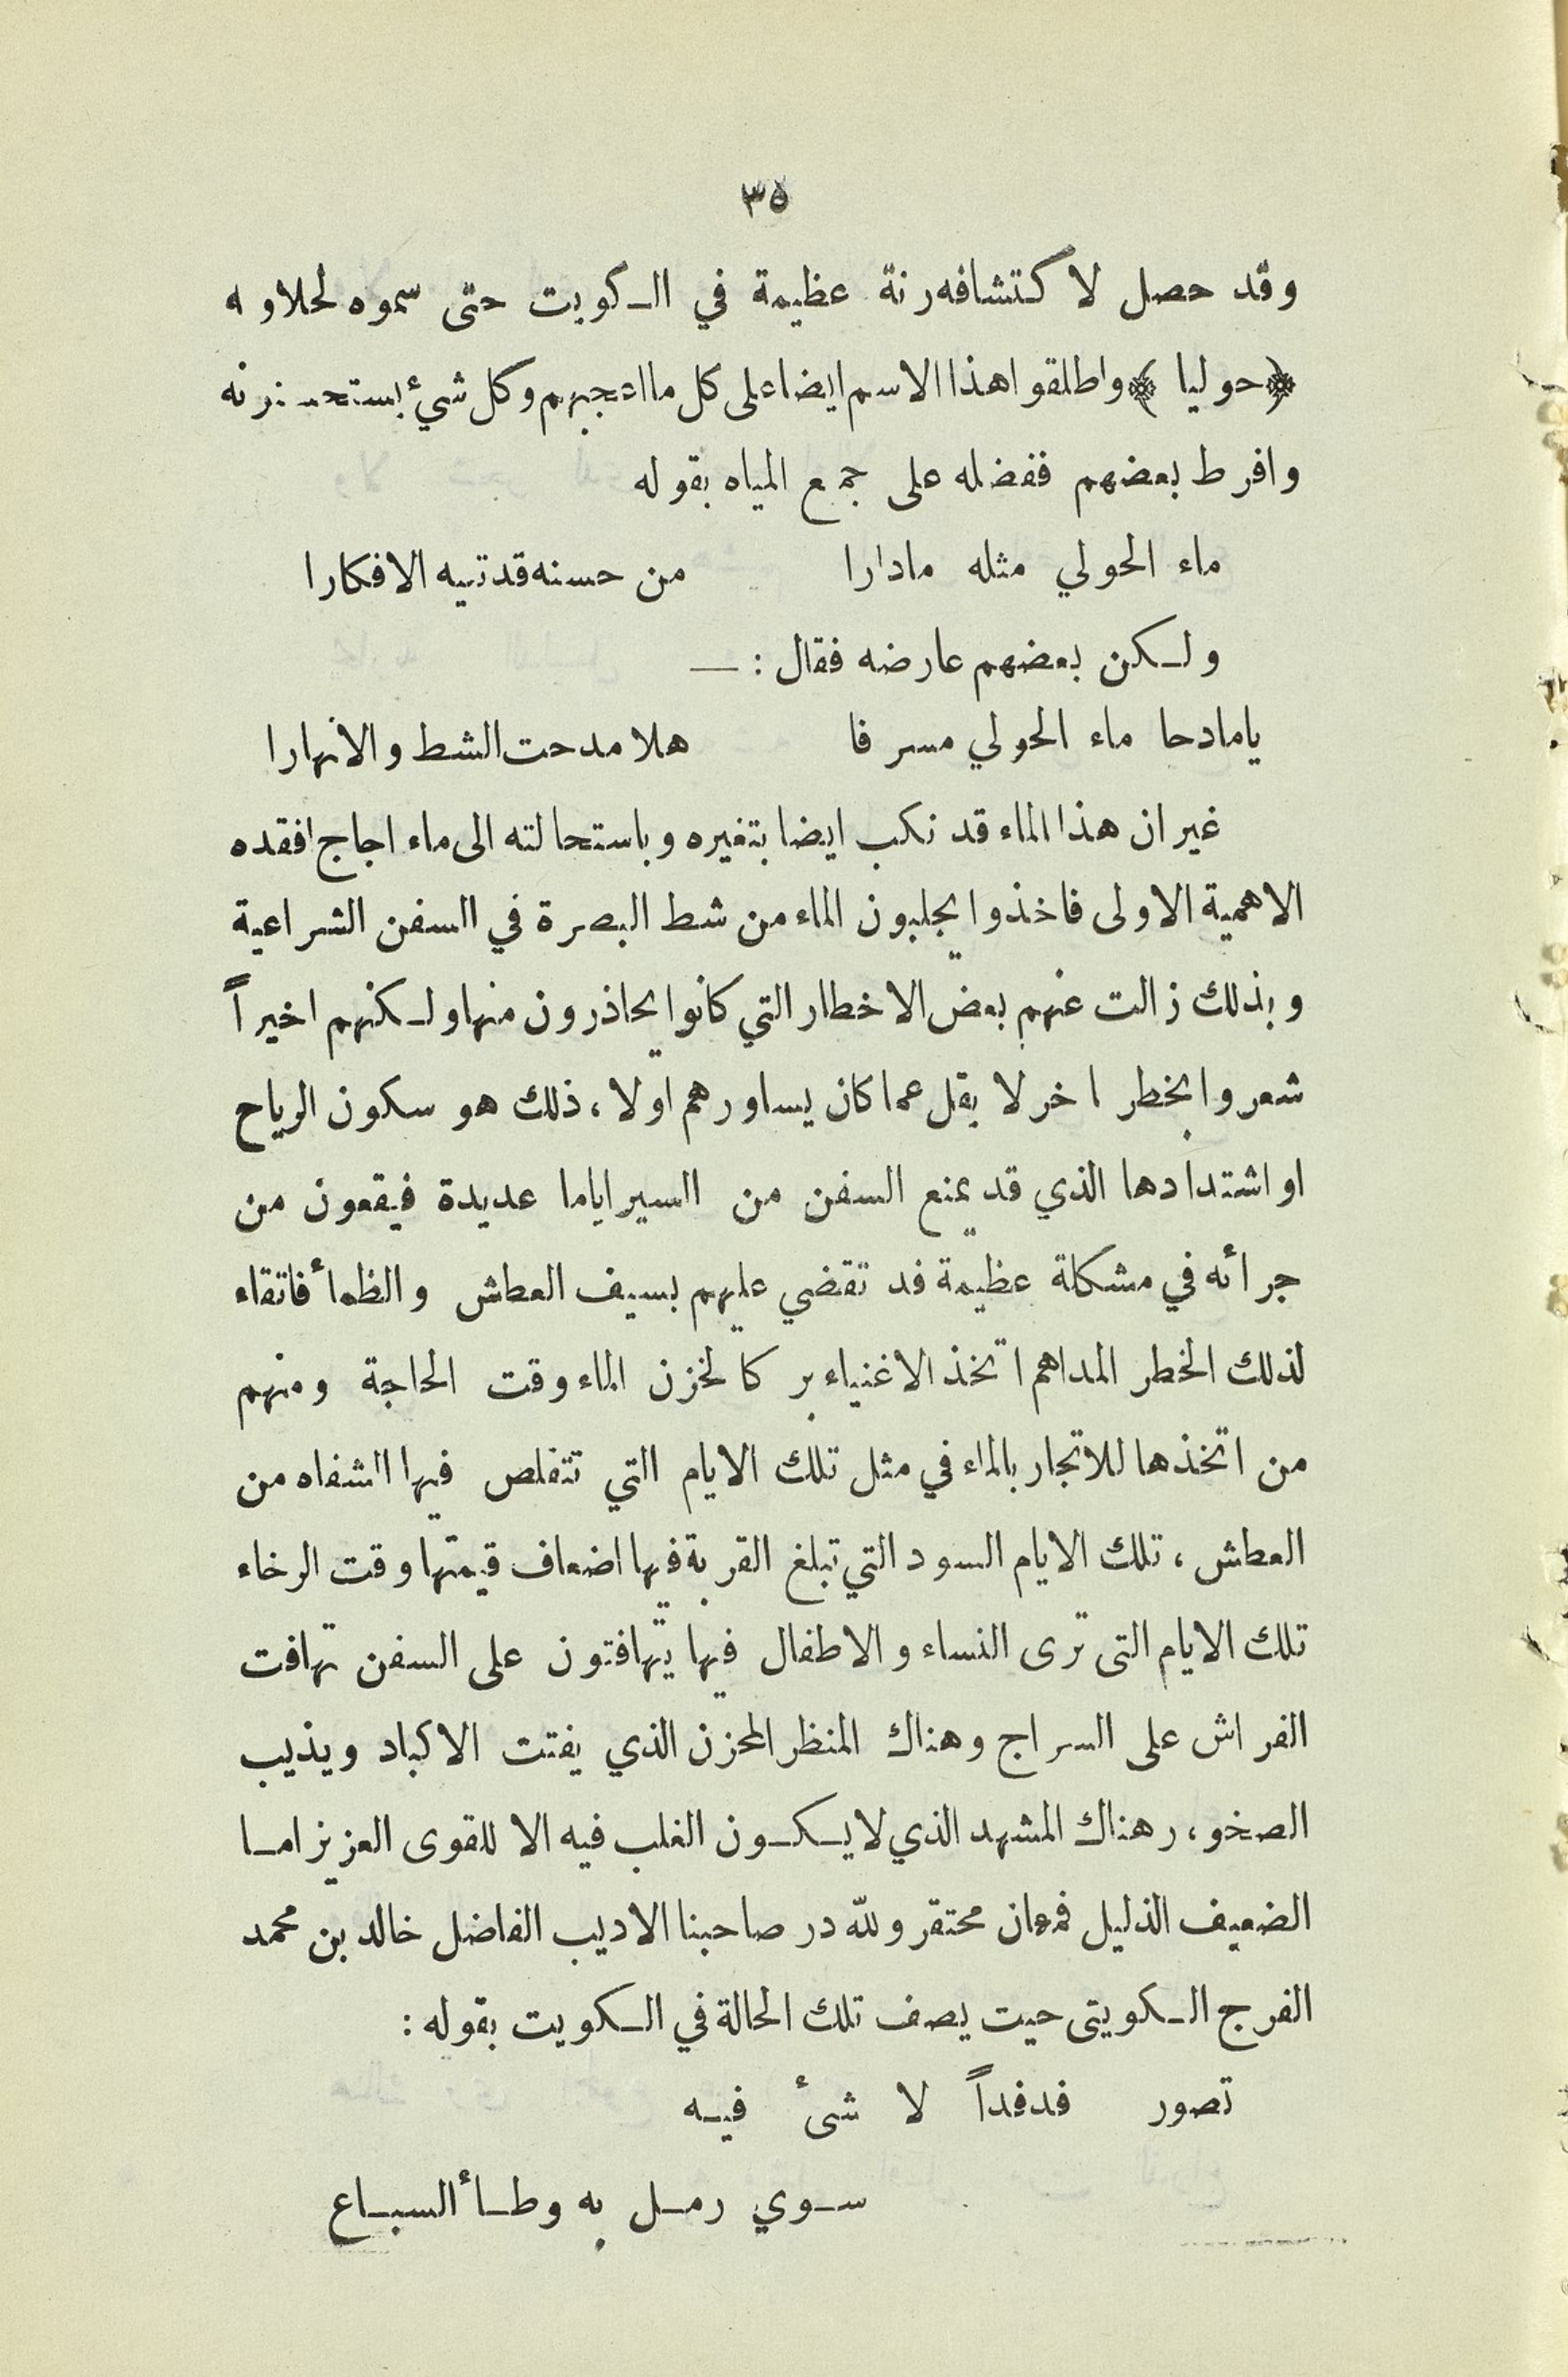 ٣٥
وقد حصل لاكتشافه رنة عظيمة في الكويت حتى سموه لحلاوته
﴿حوليا﴾ واطلقوا هذا الاسم ايضا على كل ما اعجبهم وكل شيء يستحسنونه
وافرط بعضهم ففضله على جمع المياه بقوله
ماء الحولي مثله مادارا من حسنه قد تيه الافكارا
ولكن بعضهم عارضه فقال : —
يامادحا ماء الحولي مسرفا هلا مدحت الشط والانهارا
غير ان هذا الماء قد نكب ايضا بتغيره وباستحالته الى ماء اجاج افقده
الاهمية الاولى فاخذوا يجلبون الماء من شط البصرة في السفن الشراعية
وبذلك زالت عنهم بعض الاخطار التي كانوا يحاذرون منها ولكنهم اخيراً
شعروا بخطر اخر لا يقل عما كان يساورهم اولا ، ذلك هو سكون الرياح
او اشتدادها الذي قد يمنع السفن من السير اياما عديدة فيقعون من
جرائه في مشكلة عظيمة قد تقضي عليهم بسيف العطش والظمأ فاتقاء
لذلك الخطر المداهم اتخذ الاغنياء بركا لخزن الماء وقت الحاجة ومنهم
من اتخذها للاتجار بالماء في مثل تلك الايام التي تتقلص فيها الشفاه من
العطش ، تلك الايام السود التي تبلغ القربة فيها اضعاف قيمتها وقت الرخاء
تلك الايام التى ترى النساء والاطفال فيها يتهافتون على السفن تهافت
الفراش على السراج وهناك المنظر المحزن الذي يفتت الاكباد ويذيب
الصخو ، رهناك المشهد الذي لا يكون الغلب فيه الا للقوى العزيز اما
الضعيف الذليل فمهان محتقر ولله در صاحبنا الاديب الفاضل خالد بن محمد
الفرج الكويتى حيت يصف تلك الحالة في الكويت بقوله :
تصور فدفداً لا شئ فيه
سوي رمل به وطأ السباع